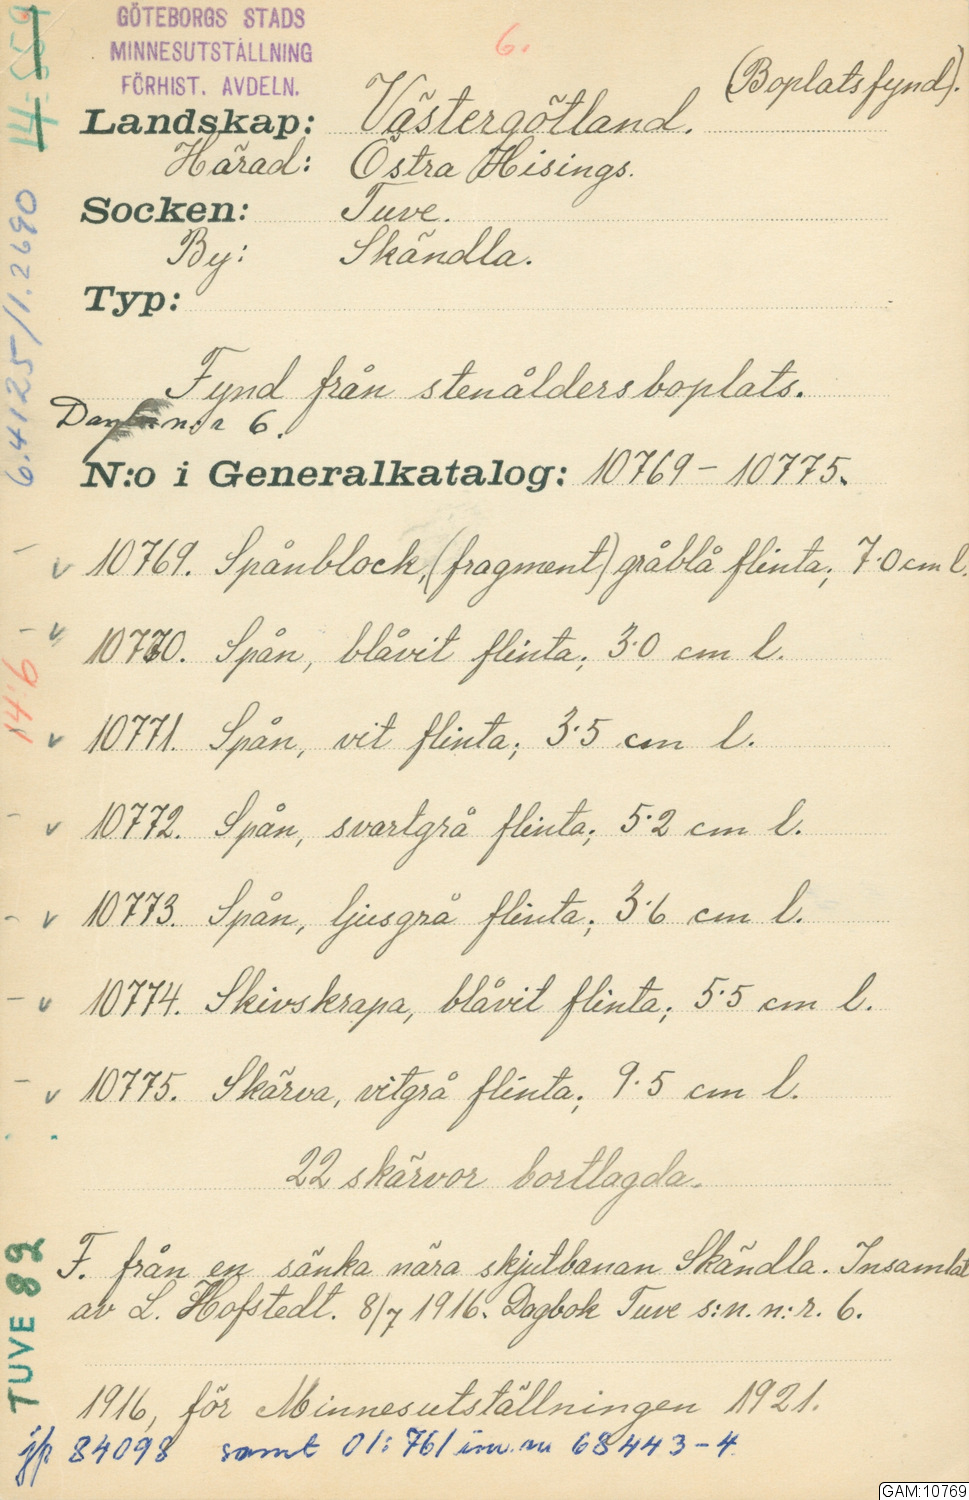 GÖTEBORGS STADS
MINNESUTSTÄLLNING
FÖRHIST. AVDELN.
6.
(Boplatsfynd).
Landskap: Västergötland.
Härad: Östra Hisings.
Socken: Tuve.
By: Skändla.
Typ:
Fynd från stenåldersboplats.
n:r 6.
N:o i Generalkatalog: 10769 – 10775.
10769. Spånblock, (fragment) gråblå flinta; 7·0 cm l.
10770. Spån, blåvit flinta; 3·0 cm l.
10771. Spån, vit flinta; 3·5 cm l.
10772. Spån, svartgrå flinta; 5·2 cm l.
10773. Spån, ljusgrå flinta; 3·6 cm l.
10774. Skivskrapa, blåvit flinta; 5·5 cm l.
10775. Skärva, vitgrå flinta; 9·5 cm l.
22 skärvor bortlagda.
F. från en sänka nära skjutbanan Skändla. Insamlat
av L. Hofstedt. 8/7 1916. Dagbok Tuve s:n. n:r. 6.
1916, för Minnesutställningen 1921.
jfr 84098 samt 01:761 inv. nr 68443–4
14:559
6.4125/1.2690
14:6
TUVE 82
GAM:10769